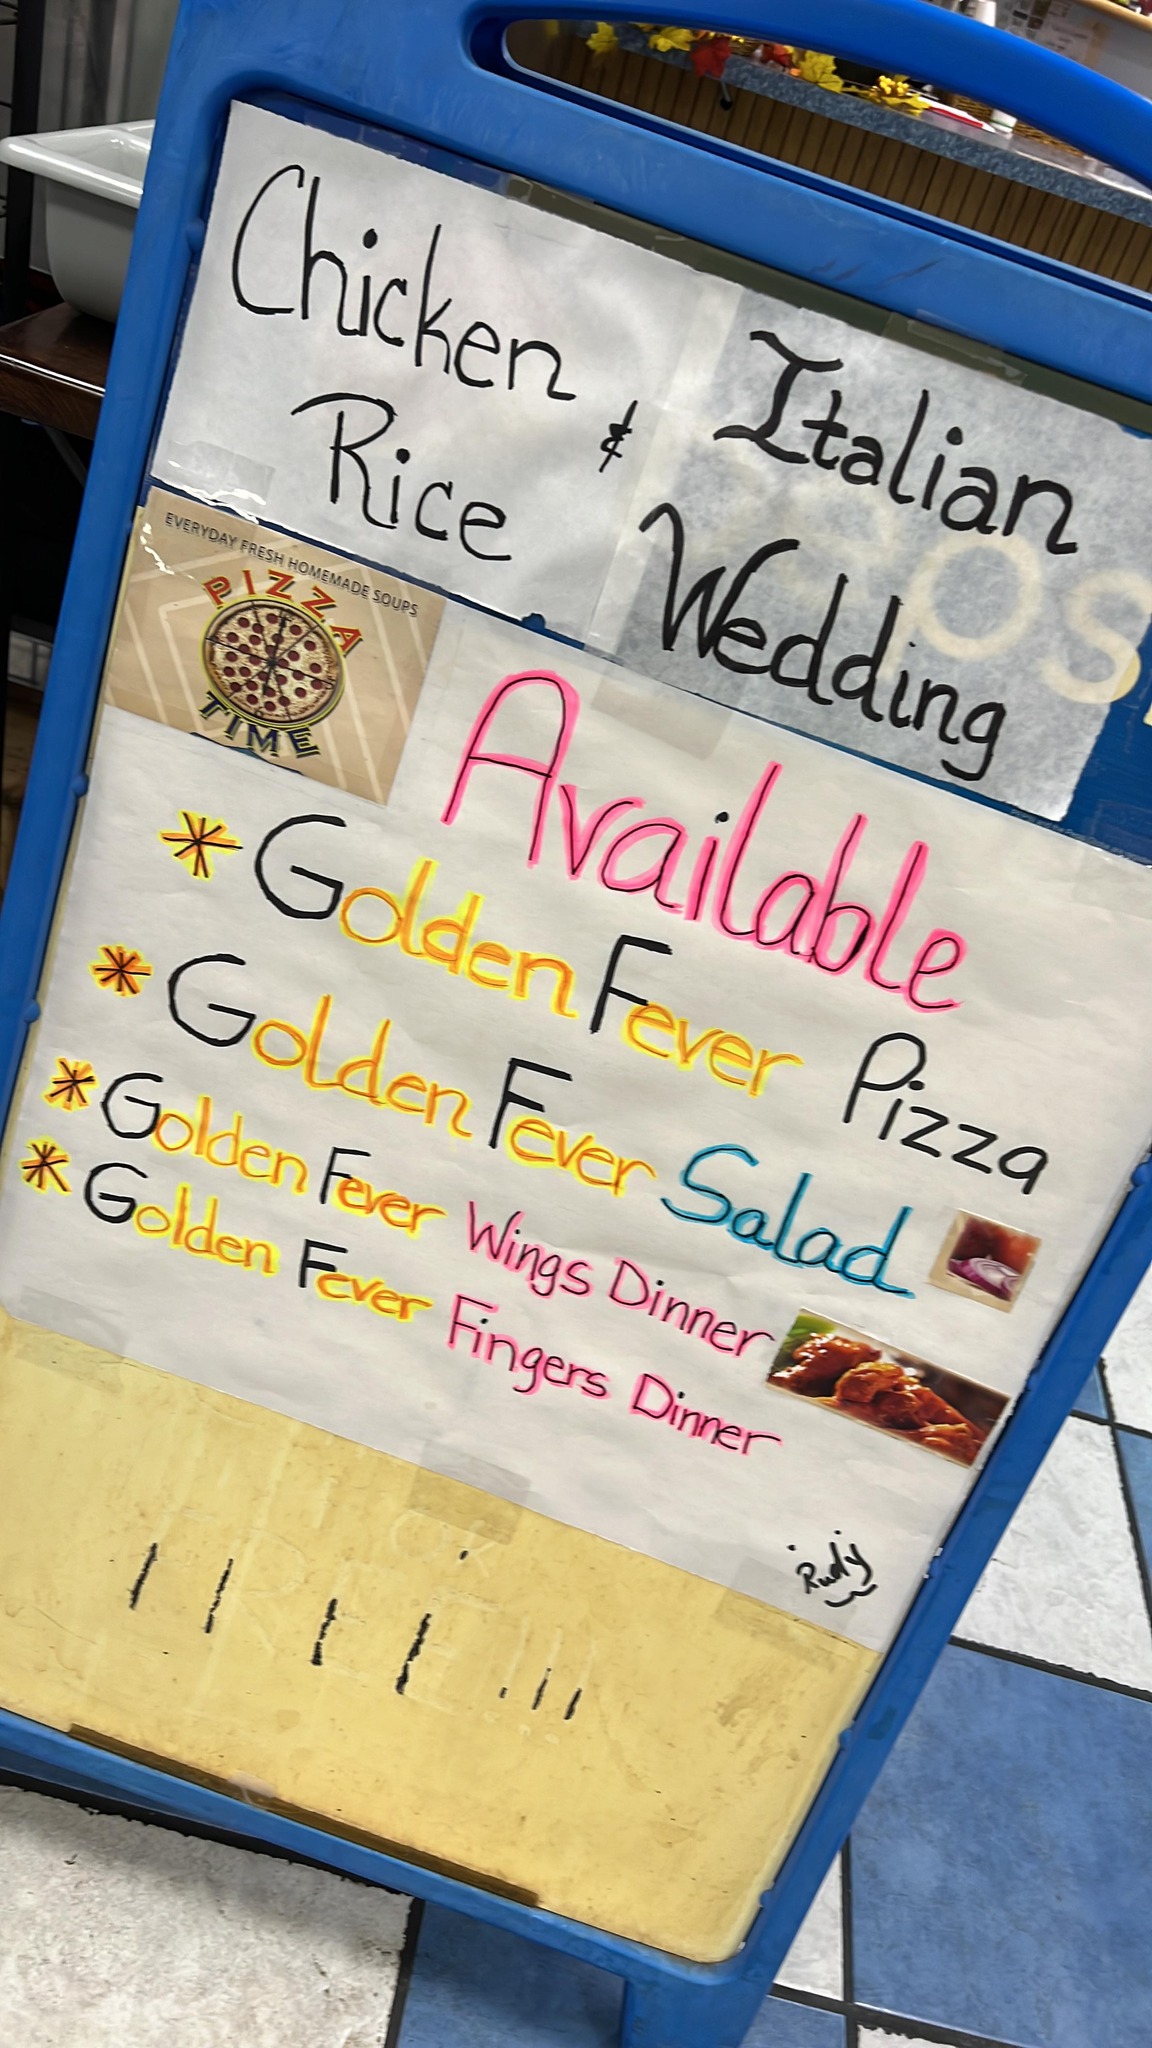 Chicken
Rice
&
Italian
Wedding
EVERYDAY FRESH HOMEMADE SOUPS
PIZZA
TIME
Available
* Golden Fever Pizza
* Golden Fever Salad
* Golden Fever Wings Dinner
* Golden Fever Fingers Dinner
Rudy